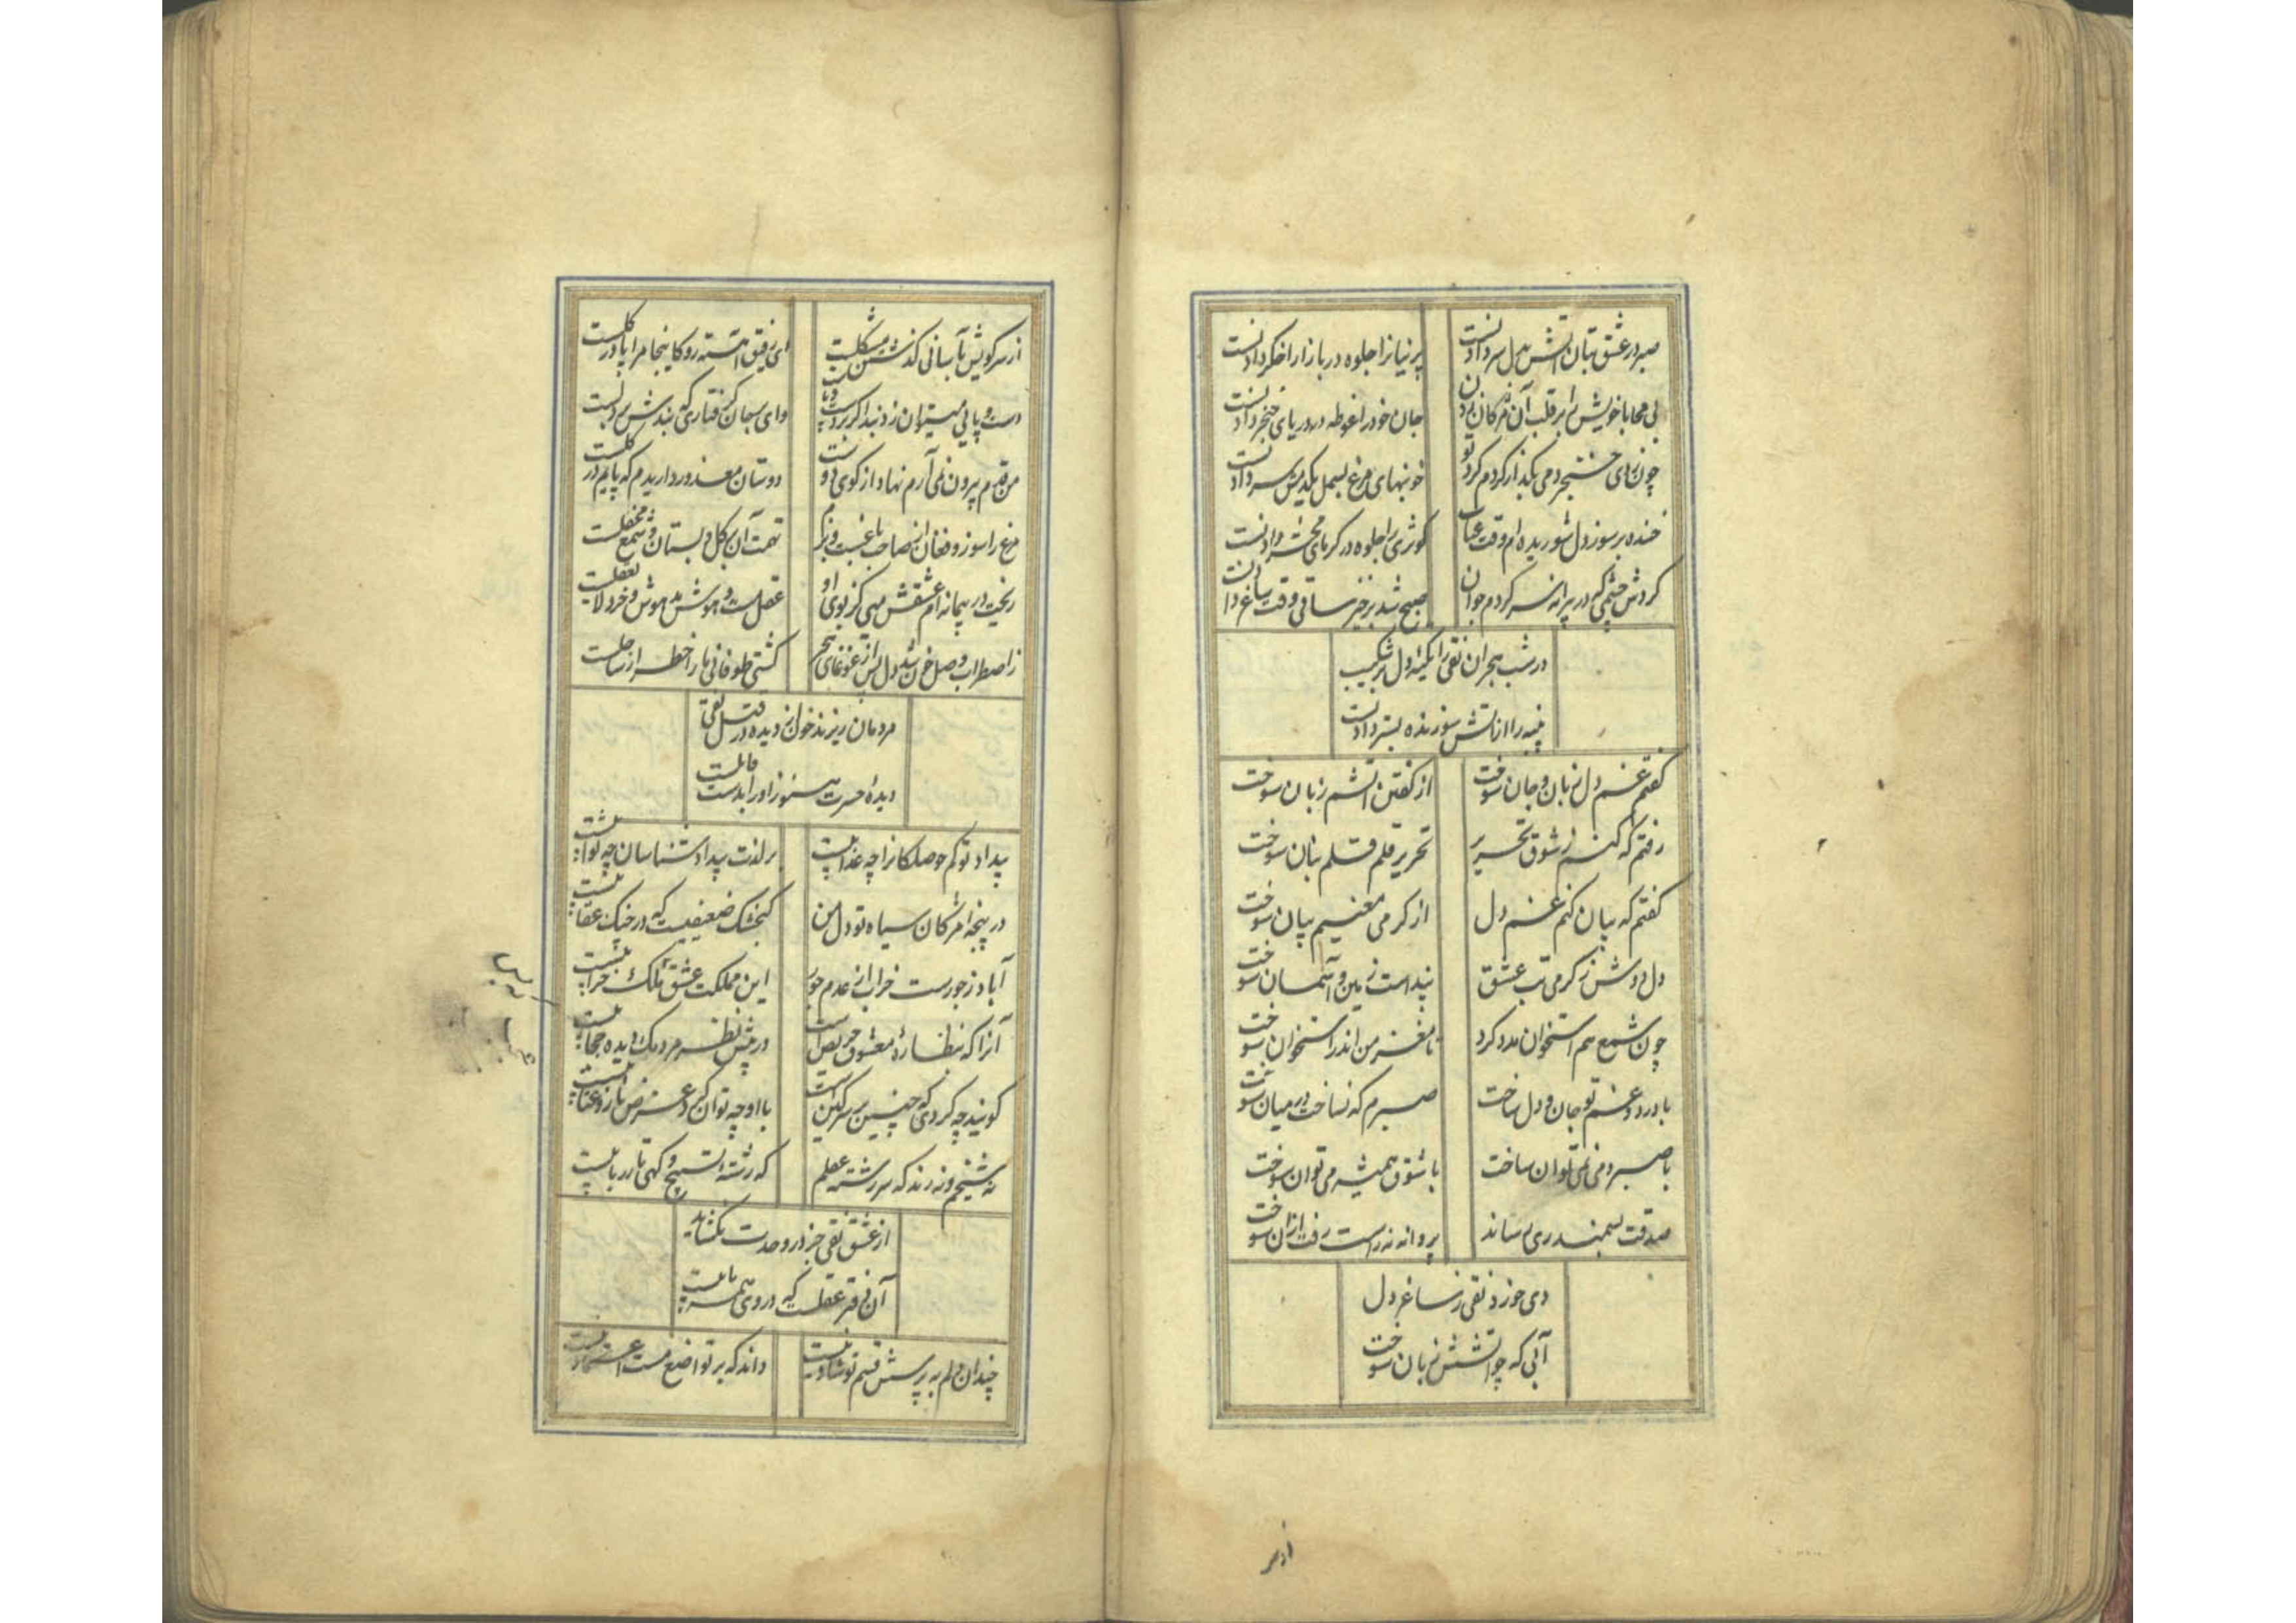 صبر در عشق بتان آتش بدل سر دادنست
پرنیانرا جلوه در بازار اخگر دادنست
بی محابا خویش را بر قلب آن مژگان زدن
جان خود را غوطه در دریای خنجر دادنست
چون زدی خنجر دمی بگذار گردم گرد تو
خونبهای مرغ بسمل یکدمش سر دادنست
خنده بر سوز دل شوریده ام وقت عتاب
کوثری را جلوه در گرمای محشر دادنست
گردش چشمی که در پیرانه سر گردم جوان
صبح شد برخیز ساقی وقت ساغر دادنست
در شب هجران نقی را تکیه دل بر شکیب
پنبه را از آتش سوزنده بستر دادنست
گفتم غم دل زبان و جان سوخت
از گفتن آتشم زبان سوخت
رفتم که کنم ز شوق تحریر
تحریر قلم قلم بنان سوخت
گفتم که بیان کنم غم دل
از گرمی معنیم بیان سوخت
دل دوش ز گرمی تب عشق
پنداست زمین و آسمان سوخت
چون شمع هم استخوان مدد کرد
تا مغز من اندر استخوان سوخت
با درد و غم تو جان و دل ساخت
صبرم که نساخت در میان سوخت
با صبر دمی نمی توان ساخت
با شوق همیشه می توان سوخت
صدقت بسمندری رساند
پروانه نه راست رفت ازان سوخت
دی خورد نقی ز ساغر دل
آبی که چو آتشش زبان سوخت
از سر
از سر کویش بآسانی گذشتن مشکلست
ای رفیق آهسته رو کاینجا مرا پا در گلست
دست و پایی میتوان زد بند اگر بر دست و پاست
وای بجان گرفتاری که بندش بر دلست
من قدم بیرون نمی آرم نهاد از کوی دوست
دوستان معذور داریدم که پایم در گلست
مرغ را سوز و فغان از صاحب باغست و بزم
تهمت آن بر گل و بستان و شمع محفلست
ریخت در پیمانه ام عشقش میی کز بوی او
عقل مست و هوش بدهوش و خرد لایعقلست
ز اضطراب وصل خون شد دل پس از غوغای هجر
کشتی طوفانی ما را خطر از ساحلست
مردمان ریزند خون از دیده در قتل نقی
دیدهٔ حسرت هنوز او را بدست قاتلست
بیداد تو کم حوصلگانرا چه عذابیست
بر لذت بیداد شناسان چه ثوابیست
در پنجه مژگان سیاه تو دل من
گنجشک ضعیفیست که در چنگ عقابیست
آباد ز جورست خراب از عدم جور
این مملکت عشق تلک خرابیست
آنرا که بنظارهٔ معشوق حریص است
در پیش نظر مردمک دیده حجابیست
گویند چه کردی که چنین بر سر کین است
با او چه توان کرد غرض ناز و عتابیست
نه شیخم و نه رند که سر رشته عقلم
که رشتهٔ تسبیح و گهی تار ربابیست
از عشق نقی جز در وحدت نگشاید
آن دفتر عقلست که در وی همه بابیست
چندان دلم به پرسش قسم تو شاد نیست
داند که بر تواضع مست اعتماد نیست